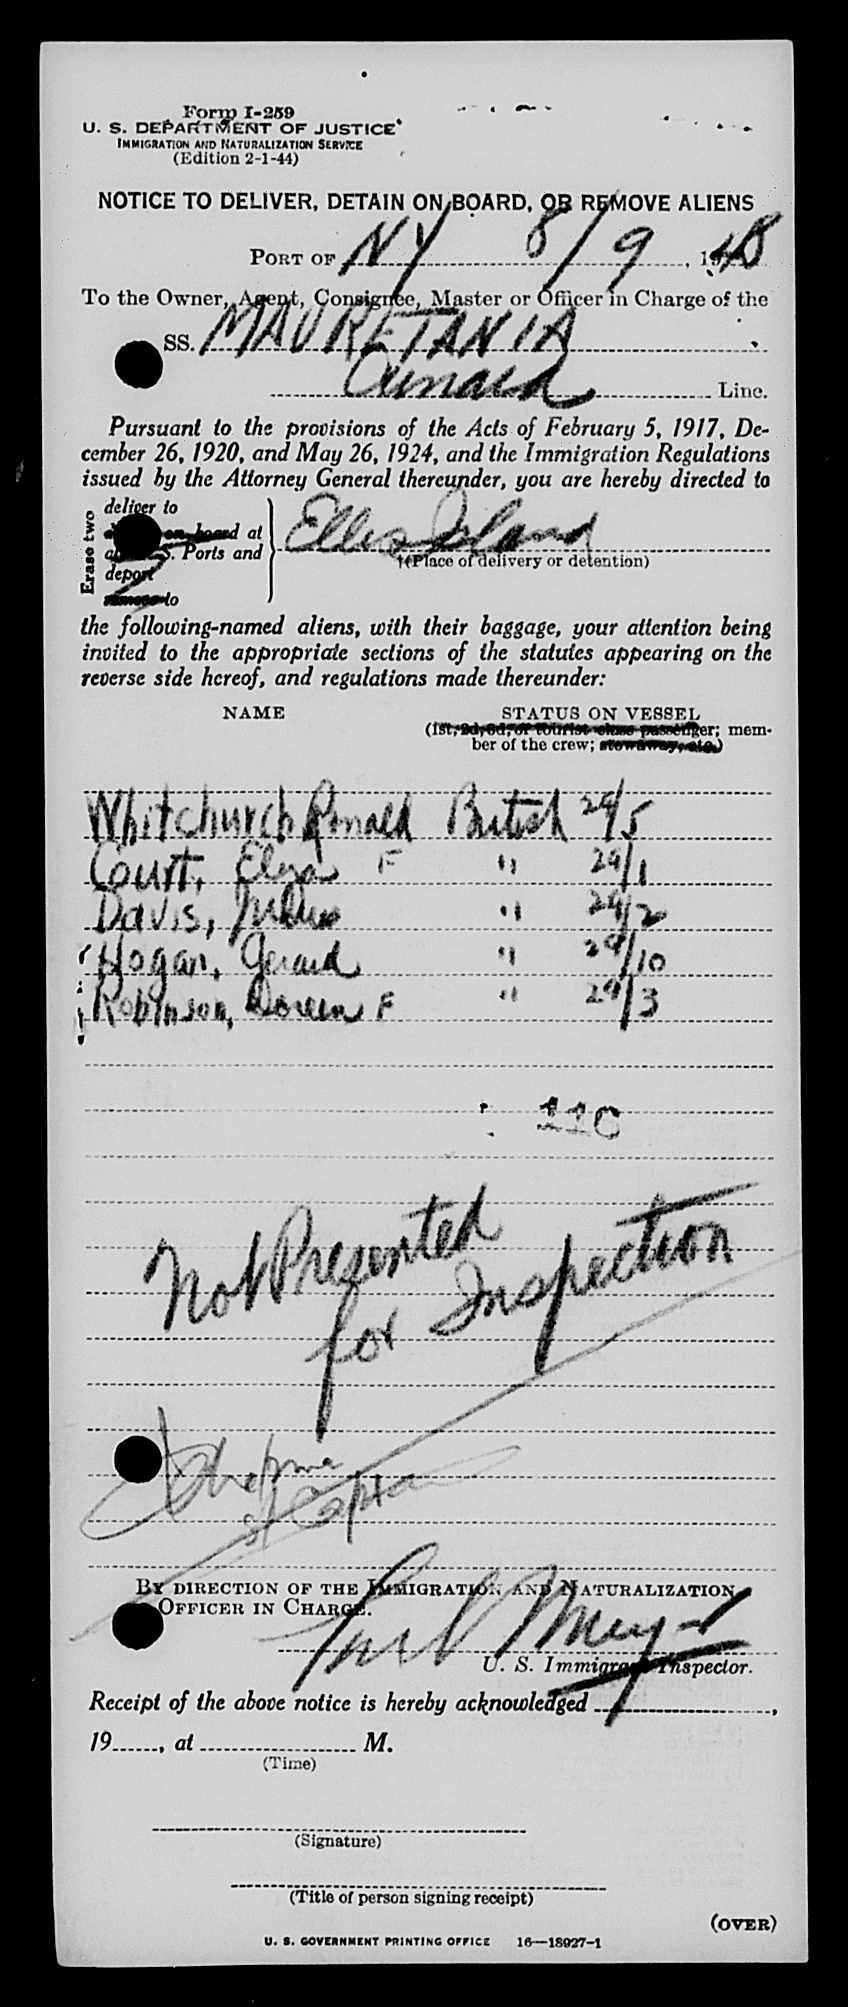 Form I-259
U. S. DEPARTMENT OF JUSTICE
IMMIGRATION AND NATURALIZATION SERVICE
(Edition 2-1-44)
NOTICE TO DELIVER, DETAIN ON BOARD, OR REMOVE ALIENS
PORT OF NY 8/9, 1948
To the Owner, Agent, Consignee, Master or Officer in Charge of the
SS. MAURETANIA
Cunard Line.
Pursuant to the provisions of the Acts of February 5, 1917, De-
cember 26, 1920, and May 26, 1924, and the Immigration Regulations
issued by the Attorney General thereunder, you are hereby directed to
Erase two
deliver to
on board at
Ports and
deport
remove to
Ellis Island
(Place of delivery or detention)
the following-named aliens, with their baggage, your attention being
invited to the appropriate sections of the statutes appearing on the
reverse side hereof, and regulations made thereunder:
NAME STATUS ON VESSEL
(1st, 2d, 3d, or tourist class passenger; mem-
ber of the crew; stowaway, etc.)
Whitchurch Ronald British 29/5
Court, Eliza F " 29/1
Davis, Julius " 29/2
Hogan, Gerard " 29/10
Robinson, Doreen F " 29/3
110
Not Presented
for Inspection
St Captain
BY DIRECTION OF THE IMMIGRATION AND NATURALIZATION
OFFICER IN CHARGE.
U. S. Immigrant Inspector.
Receipt of the above notice is hereby acknowledged ,
19 , at M.
(Time)
(Signature)
(Title of person signing receipt)
(OVER)
U. S. GOVERNMENT PRINTING OFFICE 16—18927-1